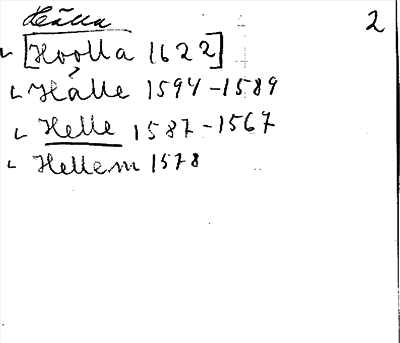 Hälla 2
[Hvolla 1622]
Hálle 1594-1589
Helle 1587-1567
Hellem 1578